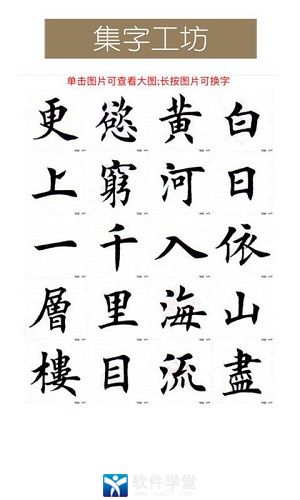 集字工坊
单击图片可查看大图;长按图片可换字
白日依山盡
黄河入海流
慾窮千里目
更上一層樓
软件学堂